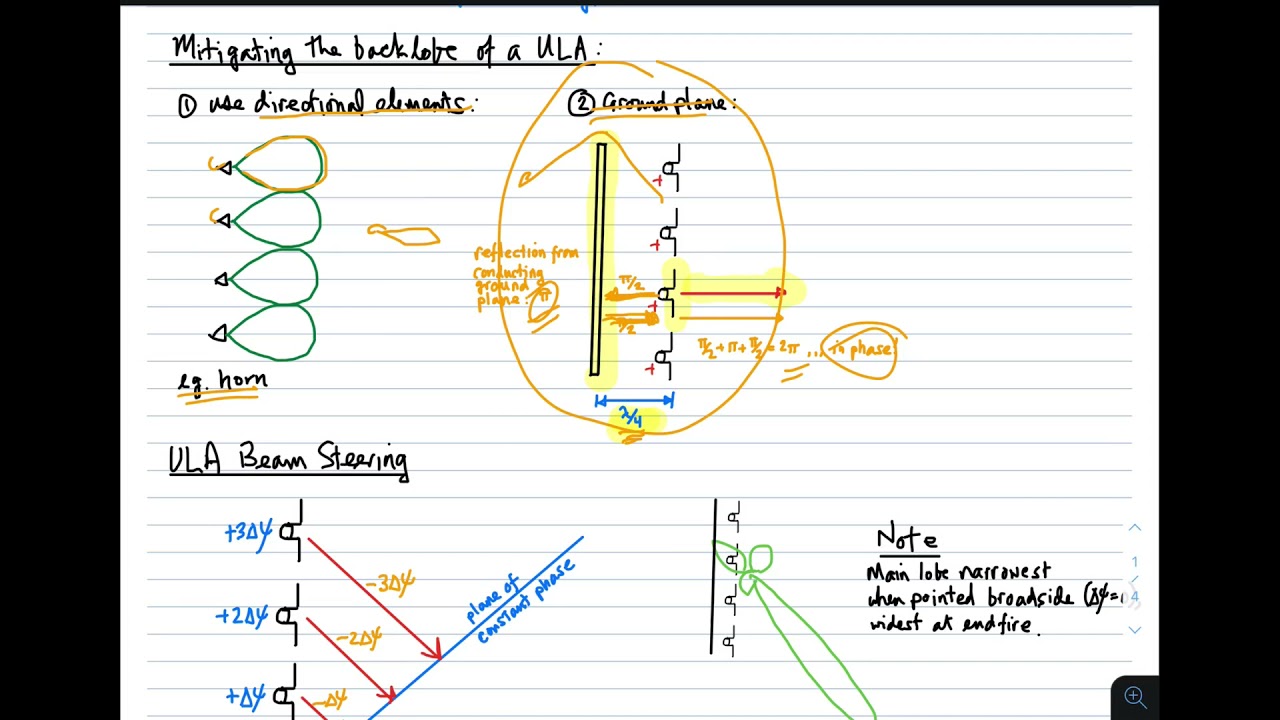 Mitigating the backlobe of a ULA:
① use directional elements:
② Ground plane:
+
+
reflection from
conducting
ground
plane: π
π/2
+
π/2
π/2 + π + π/2 = 2π ... in phase!
+
eg. horn
λ/4
ULA Beam Steering
+3Δψ
-3Δψ
+2Δψ
-2Δψ
+Δψ
-Δψ
plane of
constant phase
Note
Main lobe narrowest
when pointed broadside (Δψ=
widest at endfire.
1
4